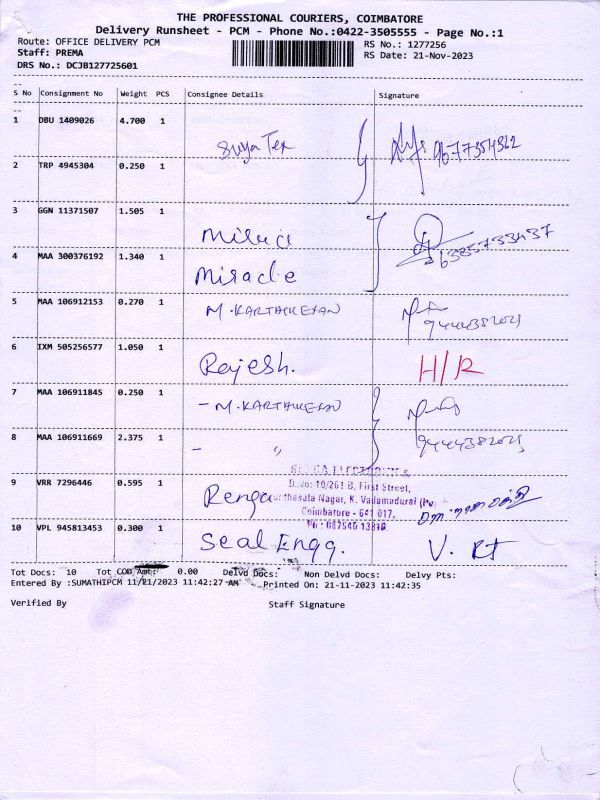 THE PROFESSIONAL COURIERS, COIMBATORE
Delivery Runsheet - PCM - Phone No.:0422-3505555 - Page No.:1
Route: OFFICE DELIVERY PCM RS No.: 1277256
Staff: PREMA RS Date: 21-Nov-2023
DRS No.: DCJB127725601
S No Consignment No Weight PCS Consignee Details Signature
1 DBU 1409026 4.700 1
Surya Tex 9677354362
2 TRP 4945304 0.250 1
3 GGN 11371507 1.505 1
6385733437
4 MAA 300376192 1.340 1
Miracle
5 MAA 106912153 0.270 1 M.KARTHIKEYAN
9444382021
6 IXM 505256577 1.050 1
Rajesh. H/R
7 MAA 106911845 0.250 1 - M.KARTHIKEYAN
8 MAA 106911669 2.375 1 9444382021
- "
9 VRR 7296446 0.595 1 D.No: 10/261 B, First Street,
Renga Nagar, K. Vadamadurai
Coimbatore - 641 017.
10 VPL 945813453 0.300 1
Seal Engg. V. RT
Tot Docs: 10 Tot COD Amt: 0.00 Delvd Docs: Non Delvd Docs: Delvy Pts:
Entered By :SUMATHIPCM 11/21/2023 11:42:27 AM Printed On: 21-11-2023 11:42:35
Verified By Staff Signature